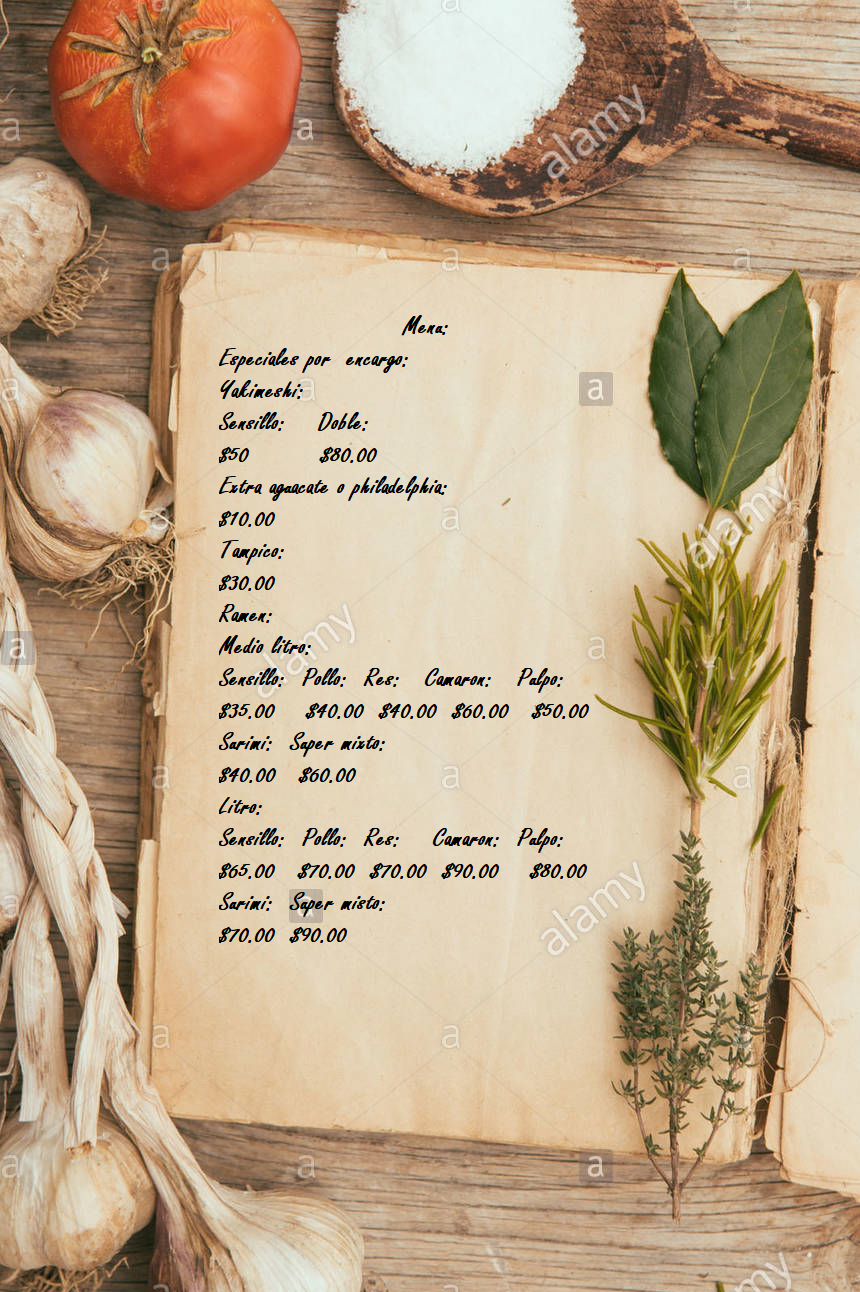 Menu:
Especiales por encargo:
Yakimeshi:
Sensillo: Doble:
$50 $80.00
Extra aguacate o philadelphia:
$10.00
Tampico:
$30.00
Ramen:
Medio litro:
Sensillo: Pollo: Res: Camaron: Pulpo:
$35.00 $40.00 $40.00 $60.00 $50.00
Surimi: Super mixto:
$40.00 $60.00
Litro:
Sensillo: Pollo: Res: Camaron: Pulpo:
$65.00 $70.00 $70.00 $90.00 $80.00
Surimi: Super misto:
$70.00 $90.00
alamy
alamy
alamy
alamy
alamy